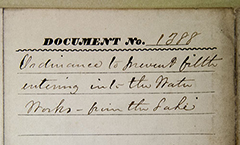 DOCUMENT No. 1388
Ordinance to prevent filth
entering into the Water
Works - from the Lake